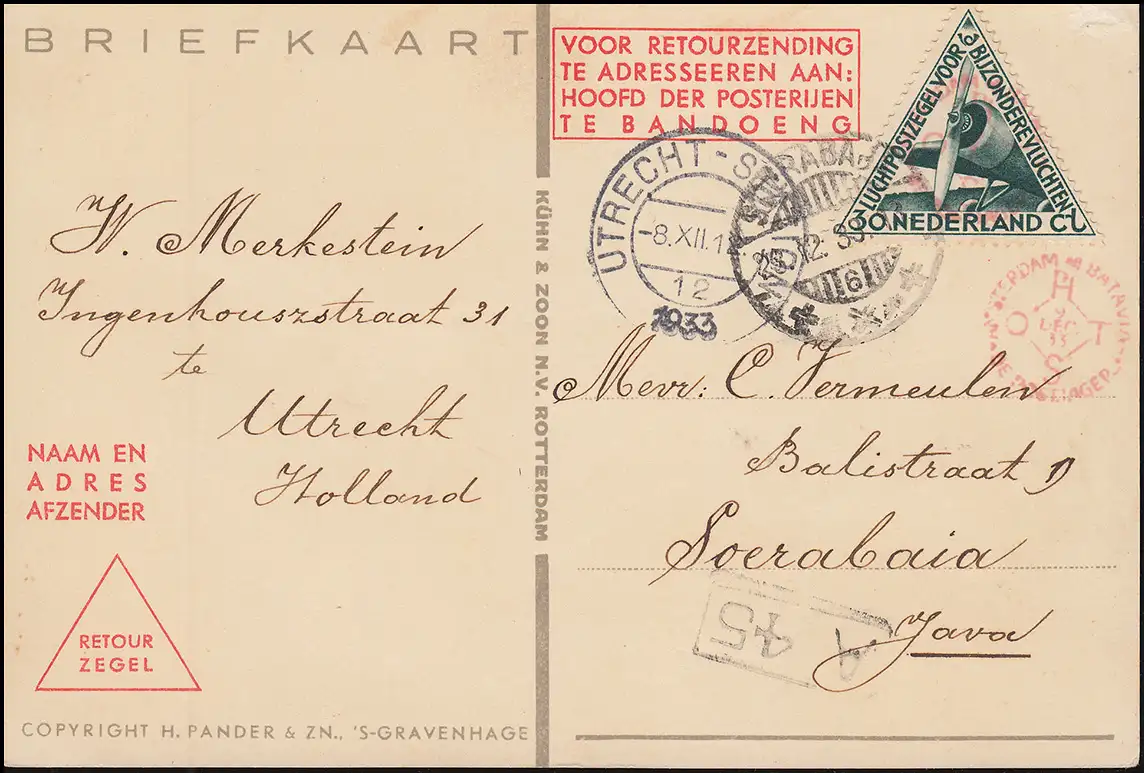 BRIEFKAART
VOOR RETOURZENDING
TE ADRESSEEREN AAN:
HOOFD DER POSTERIJEN
TE BANDOENG
LUCHTPOSTZEGEL VOOR
BIJZONDERE VLUCHTEN
30 NEDERLAND CT
UTRECHT-
-8.XII.1
12
1933
6
BATAVIA
PH
O T
S
2
DEC
33
W. Merkestein
Ingenhouszstraat 31
te
Utrecht
Holland
NAAM EN
ADRES
AFZENDER
RETOUR
ZEGEL
COPYRIGHT H. PANDER & ZN., 'S-GRAVENHAGE
KÜHN & ZOON N.V. ROTTERDAM
Mevr: C. Vermeulen
Balistraat 1)
Soerabaia
Java
A
45